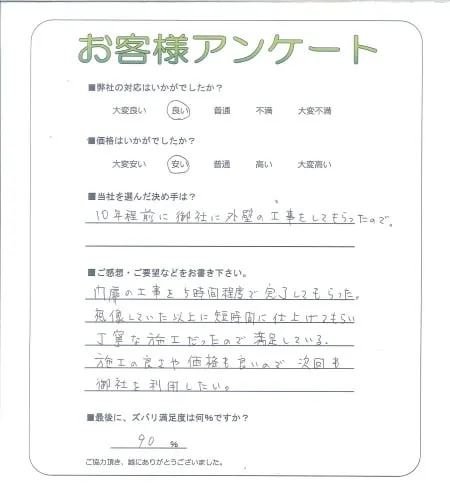 お客様アンケート
■弊社の対応はいかがでしたか？
大変良い 良い 普通 不満 大変不満
■価格はいかがでしたか？
大変安い 安い 普通 高い 大変高い
■当社を選んだ決め手は？
10年程前に御社に外壁の工事をしてもらったので。
■ご感想・ご要望などをお書き下さい。
内扉の工事を5時間程度で完了してもらった。
想像していた以上に短時間に仕上げてもらい
丁寧な施工だったので満足している。
施工の良さや価格も良いので次回も
御社を利用したい。
■最後に、ズバリ満足度は何％ですか？
90 ％
ご協力頂き、誠にありがとうございました。